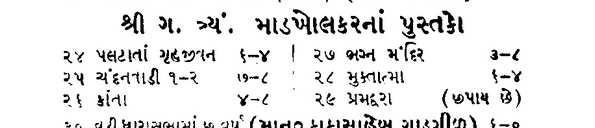 શ્રી ગ. ત્ર્યં. માડખોલકરનાં પુસ્તકો
૨૪ પલટાતાં ગૃહજીવન ૬-૪ ૨૭ ભગ્ન મંદિર ૩-૮
૨૫ ચંદનવાડી ૧-૨ ૭-૮ ૨૮ મુક્તાત્મા ૬-૪
૨૬ કાંતા ૪-૮ ૨૯ પ્રમદ્વરા (છપાય છે)